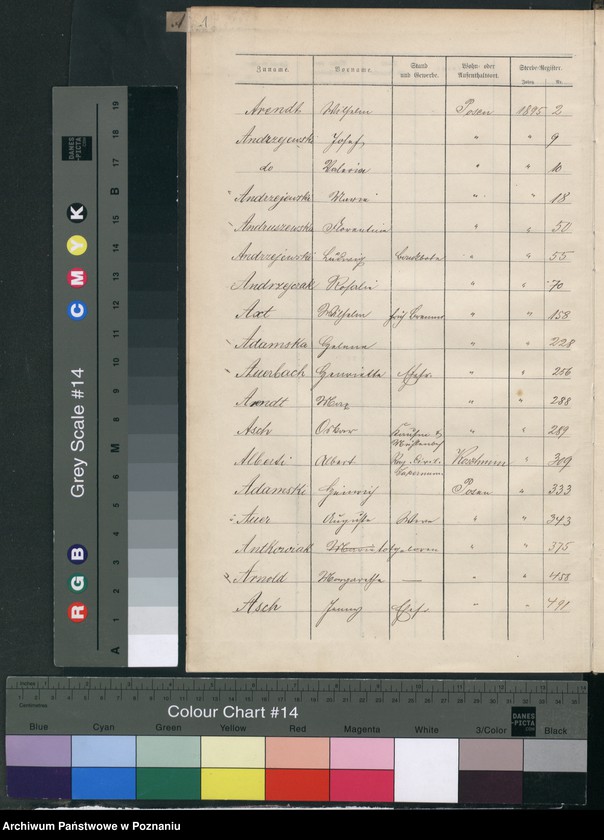 1
Zuname. Vorname. Stand und Gewerbe. Wohn- oder Aufenthaltsort. Sterbe-Register.
Jahrg. Nr.
Arendt Wilhelm Posen 1895 2
Andrzejewski Josef " " 9
do Valeria " " 10
Andrzejewski Maria " " 18
Andruszewska Florentina " " 50
Andrzejewski Ludwig " " 55
Andrzejczak Rosalie " " 70
Axt Wilhelm " " 158
Adamska Helena " " 228
Auerbach Henriette Ehefr. " " 256
Arndt Max " " 288
Asch Oskar " " 289
Alberdi Albert " 309
Adamski Heinrich Posen " 333
Auer Auguste Wwe " " 343
Antkowiak todtgeboren " " 375
Arnold Margarethe — " " 488
Asch Jenny Ehefr. " " 491
Grey Scale #14
R G B C M Y K
A 1 2 3 4 5 6 M 8 9 10 11 12 13 14 15 B 17 18 19
DANES-PICTA
Colour Chart #14
Inches
Centimetres
Blue Cyan Green Yellow Red Magenta White 3/Color Black
DANES-PICTA
Archiwum Państwowe w Poznaniu